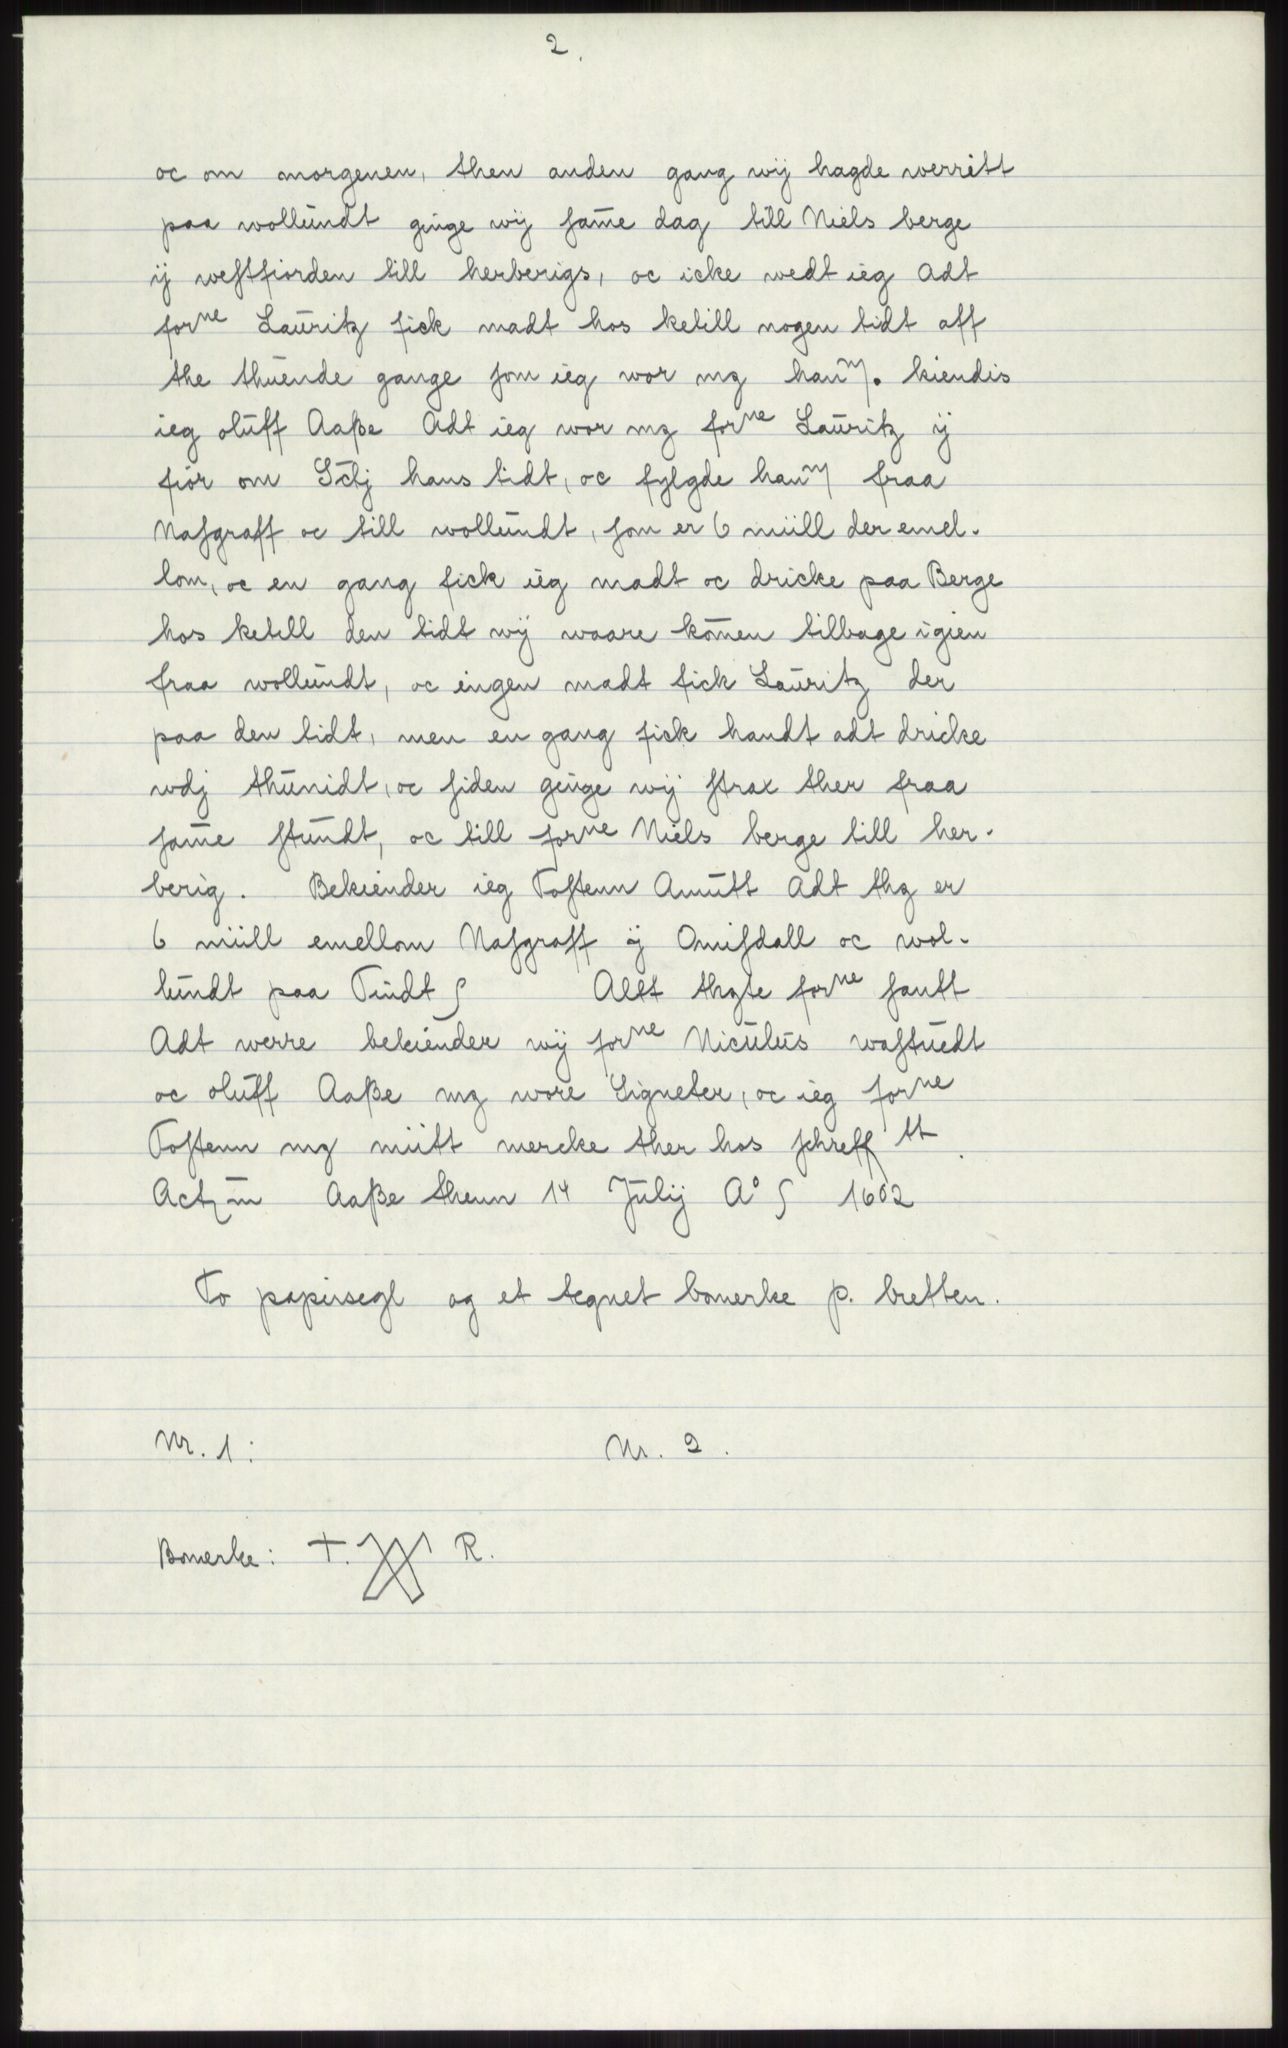 2.
oc om morgenen, then anden gang wÿ hagde werritt
paa wollundt ginge wÿ ſame dag till Niels berge
ÿ weſtfiorden till herberigs, oc icke wedt ieg Adt
forne Lauritz fick madt hos ketill nogen tidt aff
the thuende gange ſom ieg wor mz hanm. kiendis
ieg oluff Aaße Adt ieg wor mz forne Lauritz ÿ
fior om Sctj hans tidt, oc fylgde hanm fraa
Naſgraff oc till wollundt, ſom er 6 miill der emel-
lom, oc en gang fick ieg madt oc dricke paa Berge
hos ketill den tidt wÿ waare komen tilbage igien
fraa wollundt, oc ingen madt fick Lauritz der
paa den tidt, men en gang fick handt adt dricke
wdj thunidt, oc ſiden ginge wÿ ſtrax ther fraa
ſame ſtundt, oc till forne Niels berge till her-
berig. Bekiender ieg Toſtenn Amutt Adt thz er
6 miill emellom Naſgraff ÿ Omiſdall oc wol-
lundt paa Tindt ʃ Allt thzte forne ſantt
Adt werre bekiender wÿ forne Niculus waſtuedt
oc oluff Aaße mz wore Signeter, oc ieg forne
Toſtenn mz miitt mercke ther hos ſchreff tt.
Actz m Aaße thenn 14 Julij A° ʃ 1602
To papirsegl og et tegnet bomerke p. bretten.
Nr. 1: Nr. 2.
Bomerke: T. R.